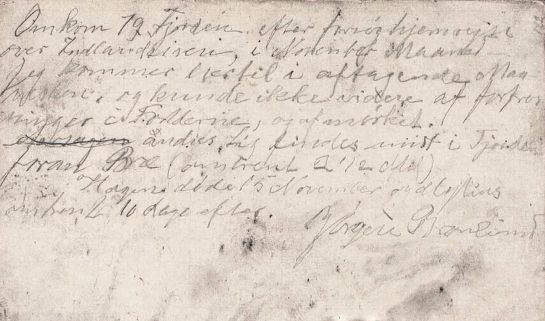 Omkom 79 Fjorden efter forsøg hjemrejse
over Indlandsisen, i November Maaned
Jeg kommer hertil i aftagende Maa
neskin, og kunde ikke videre af Forfros
ninger i Fødderne, og af Mørket.
Andres Lig findes midt i Fjorden
foran Bræ (omtrent 2 1/2 Mil)
Hagen døde 15 November og Mylius
omtrent 10 dage efter.
Jørgen Brønlund